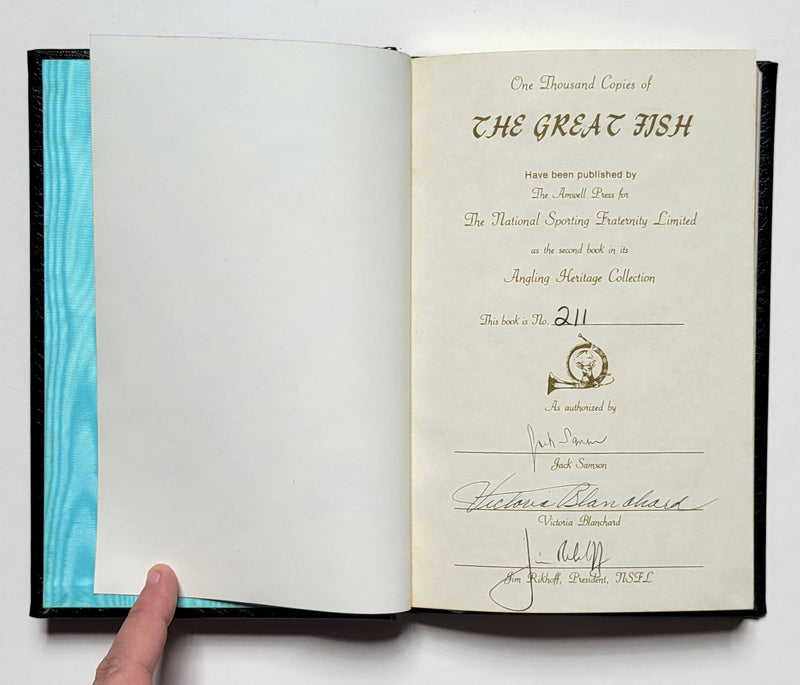 One Thousand Copies of
THE GREAT FISH
Have been published by
The Amwell Press for
The National Sporting Fraternity Limited
as the second book in its
Angling Heritage Collection
This book is No. 211
As authorized by
Jack Samson
Jack Samson
Victoria Blanchard
Victoria Blanchard
Jim Rikhoff
Jim Rikhoff, President, NSFL